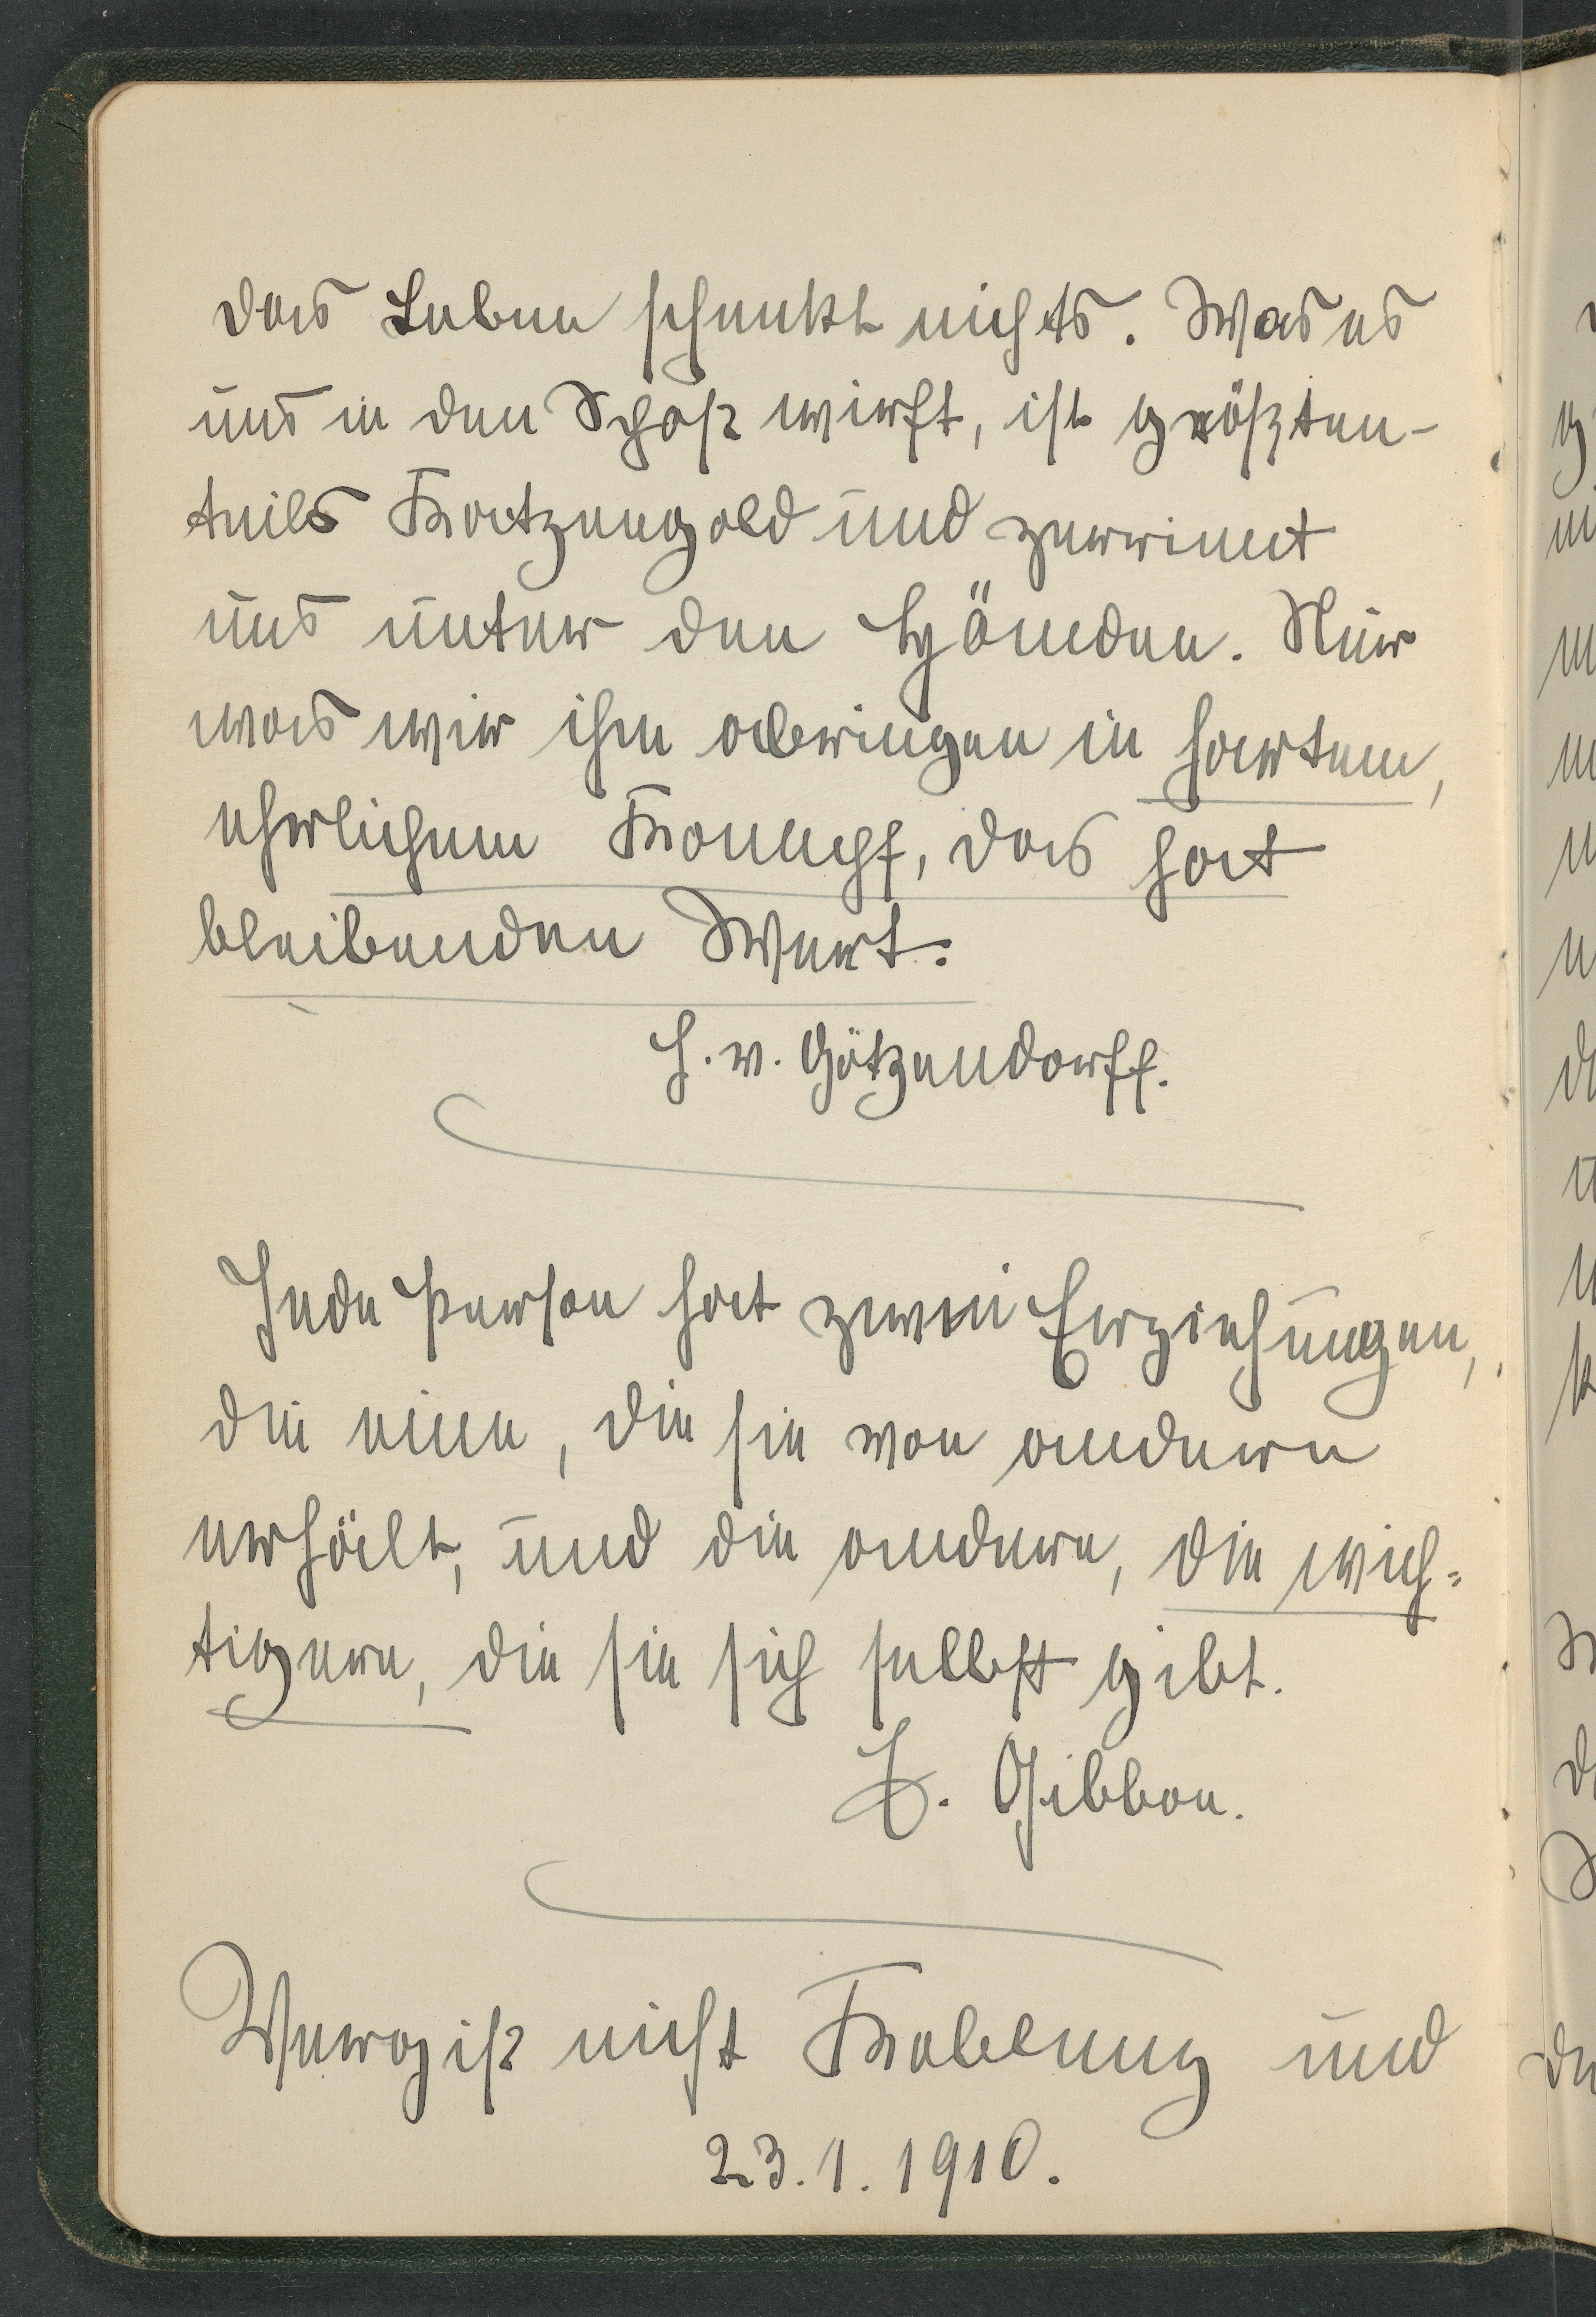 das Leben schenkt nichts. Was es
uns in den Schoß wirft, ist größten-
teils Katzengold und zerrinnt
uns unter den Händen. Nur
was wir ihm abringen in hartem,
ehrlichem Kampf, das hat
bleibenden Wert.
H. v. Götzendorff.
Jede Person hat zwei Erziehungen,
die eine, die sie von andern
erhält, und die andere, die wich-
tigere, die sie sich selbst gibt.
E. Gibbon.
Vergiß nicht Kolberg und
23.1.1910.